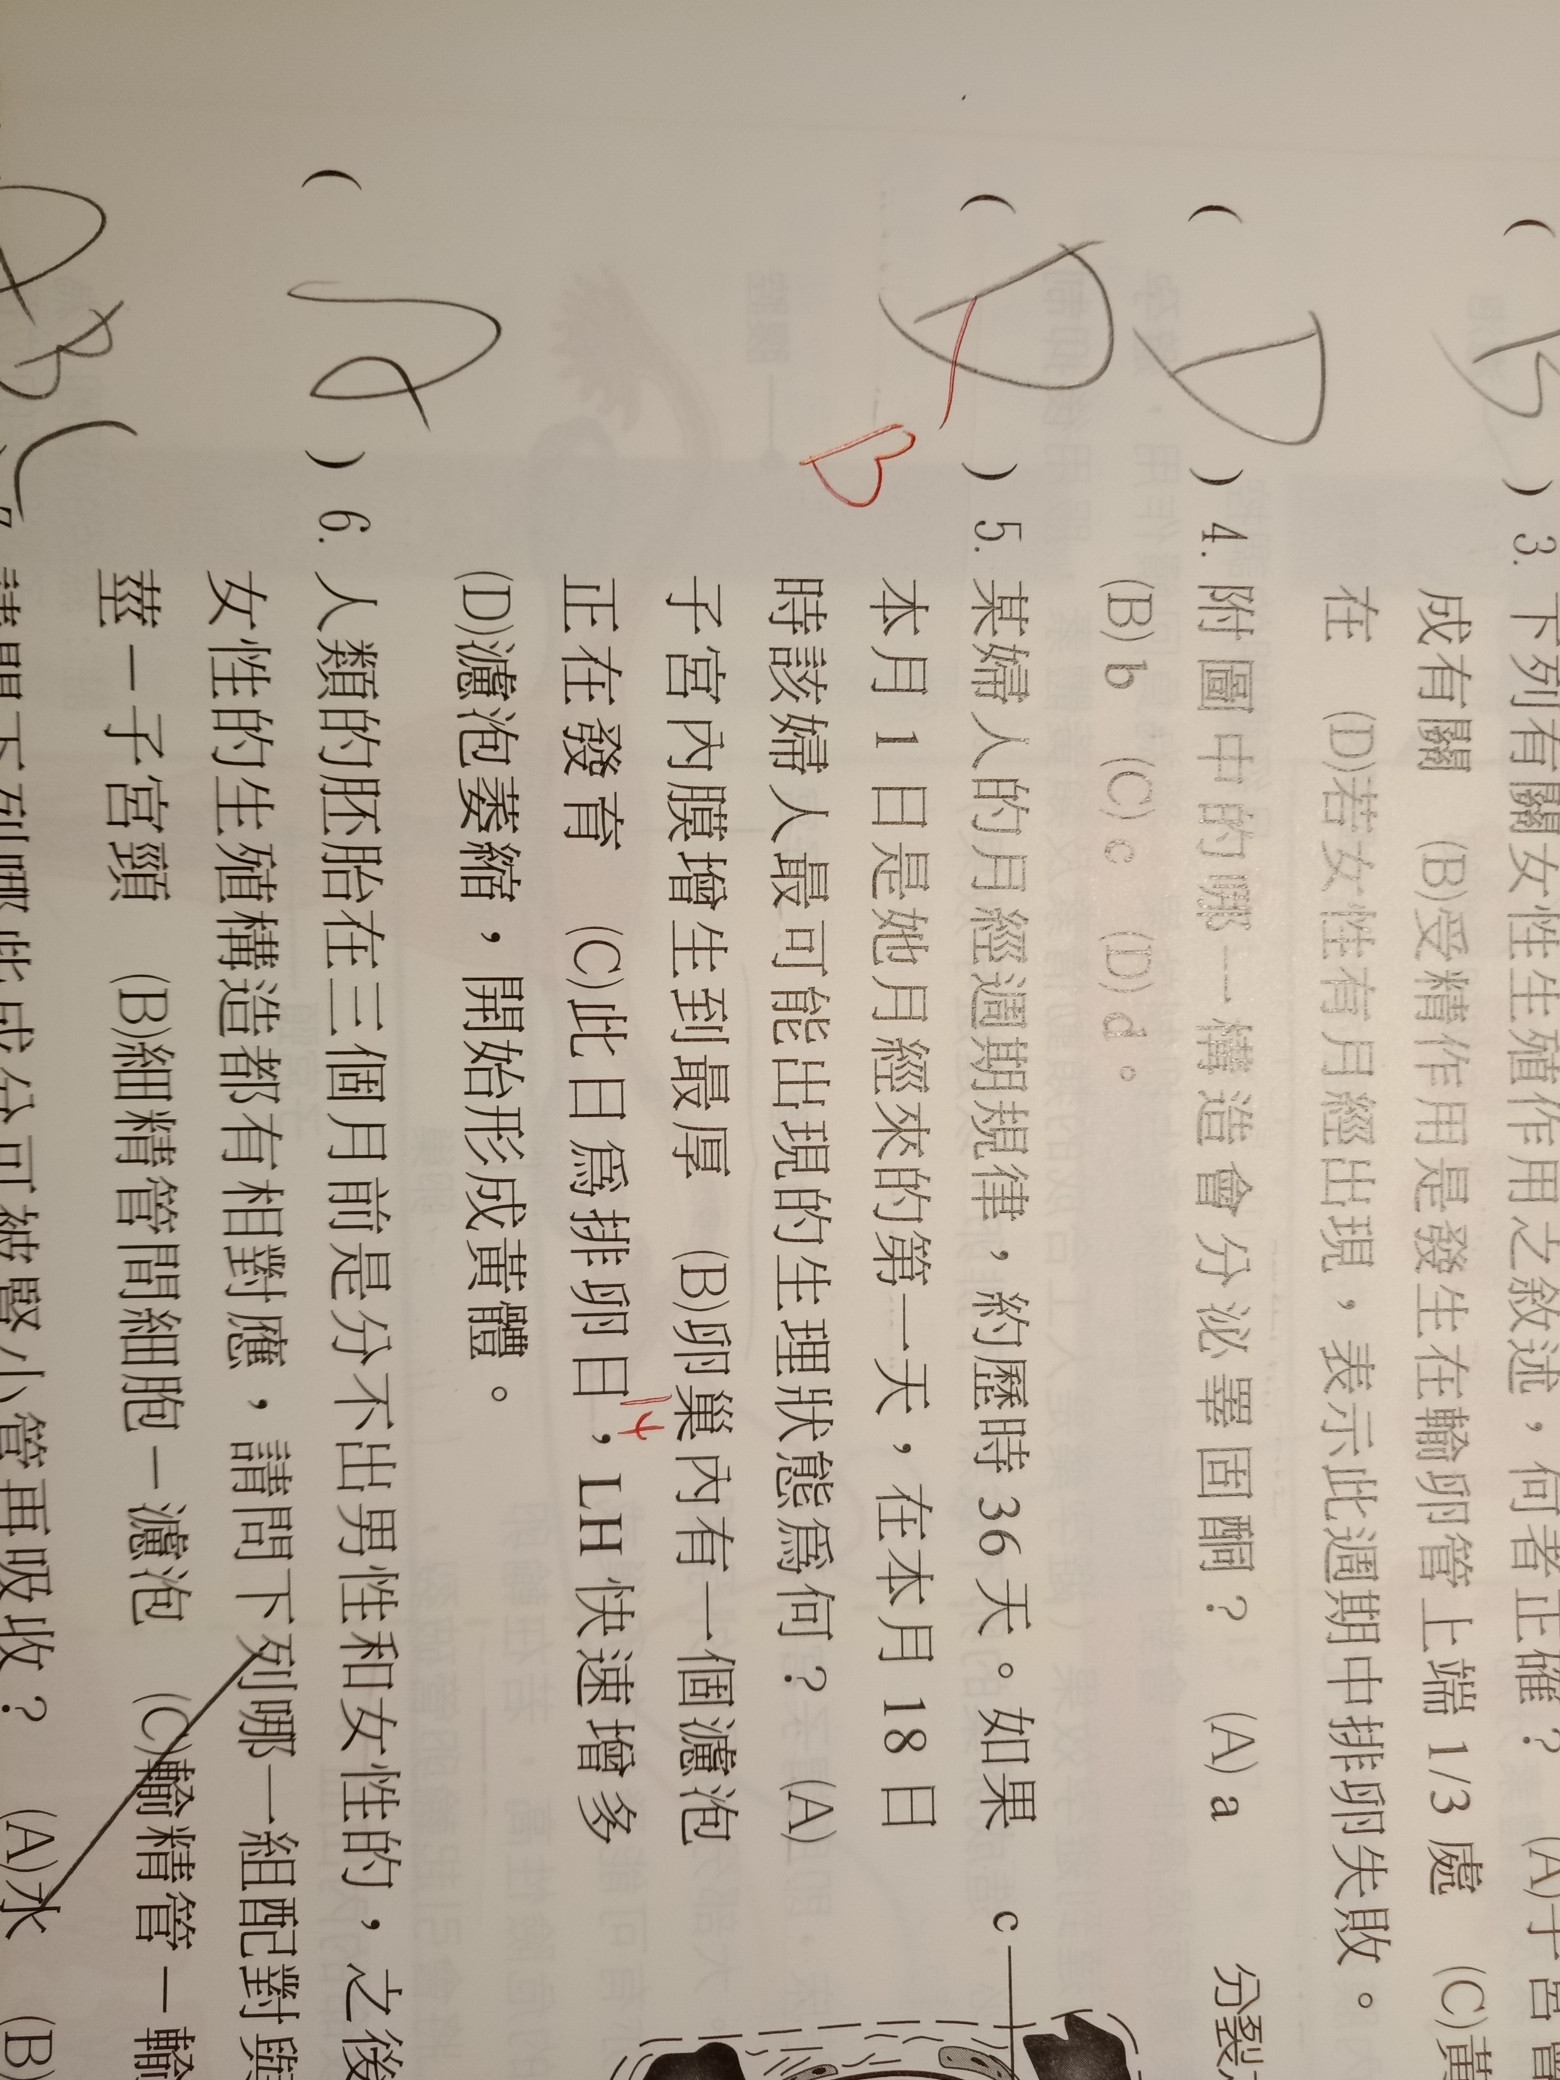 ( B ) 3. 下列有關女性生殖作用之敘述，何者正確？ (A)子宮
成有關 (B)受精作用是發生在輸卵管上端 1/3 處 (C)黃
在 (D)若女性有月經出現，表示此週期中排卵失敗。
( D ) 4. 附圖中的哪一構造會分泌睪固酮？ (A) a
(B) b (C) c (D) d。
分裂
c
( D ) 5. 某婦人的月經週期規律，約歷時 36 天。如果
B
本月 1 日是她月經來的第一天，在本月 18 日
時該婦人最可能出現的生理狀態為何？ (A)
子宮內膜增生到最厚 (B)卵巢內有一個濾泡
正在發育 (C)此日為排卵日，LH 快速增多
14
(D)濾泡萎縮，開始形成黃體。
( ) 6. 人類的胚胎在三個月前是分不出男性和女性的，之後
女性的生殖構造都有相對應，請問下列哪一組配對與
莖－子宮頸 (B)細精管間細胞－濾泡 (C)輸精管－輸
ABC
請問下列哪些成分可被腎小管再吸收？ (A)水 (B)